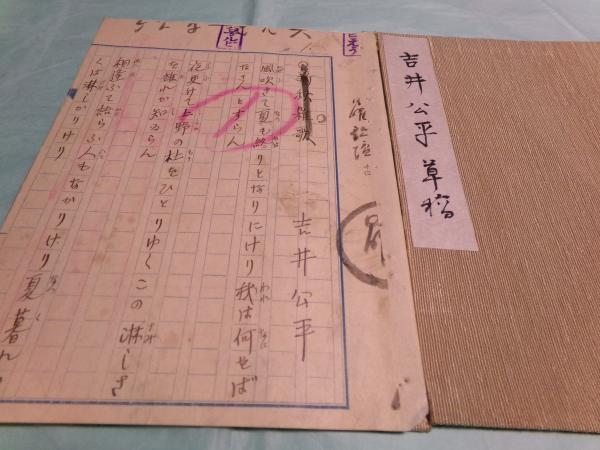 吉井公平草稿
秋雑歌
吉井公平
風吹きて夏も終りとなりにけり我は何せば
なさんとすらん
夜更けて上野の杜をひとりゆくこの淋しさ
を誰れか知るらん
相逢ふて語らふ人もなかりけり夏暮れ
くは淋しかりけり